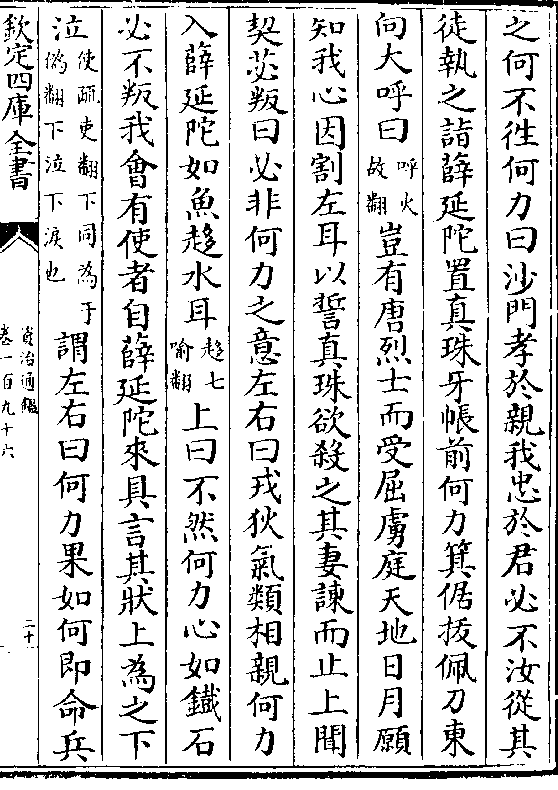 之何不徃何力曰沙門孝於親我忠於君必不汝從其
徒執之詣薛延陀置真珠牙帳前何力箕倨拔佩刀東
向大呼曰呼火故翻豈有唐烈士而受屈虜庭天地日月願
知我心因割左耳以誓真珠欲殺之其妻諫而止上聞
契苾叛曰必非何力之意左右曰戎狄氣類相親何力
入薛延陀如魚趍水耳趍七喻翻上曰不然何力心如鐵石
必不叛我會有使者自薛延陀來具言其狀上為之下
泣使疏吏翻下同為于偽翻下泣下淚也謂左右曰何力果如何即命兵
欽定四庫全書
資治通鑑
卷一百九十六
二十